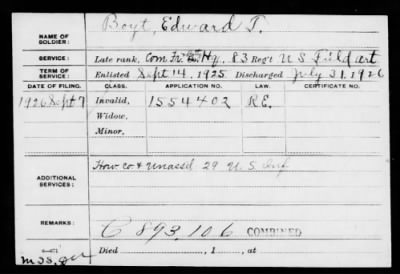 NAME OF SOLDIER: Boyt, Edward T.
SERVICE: Late rank, Hq. 83 Regt U S Field art
TERM OF SERVICE: Enlisted Sept 14, 1925 Discharged July 31, 1926
DATE OF FILING. CLASS. APPLICATION NO. LAW. CERTIFICATE NO.
1926 Sept 7 Invalid, 1554402 R.E.
Widow,
Minor,
ADDITIONAL SERVICES: How Co & Unassd 29 U.S. Inf
REMARKS: C 893,106 COMBINED
Died , 1 , at